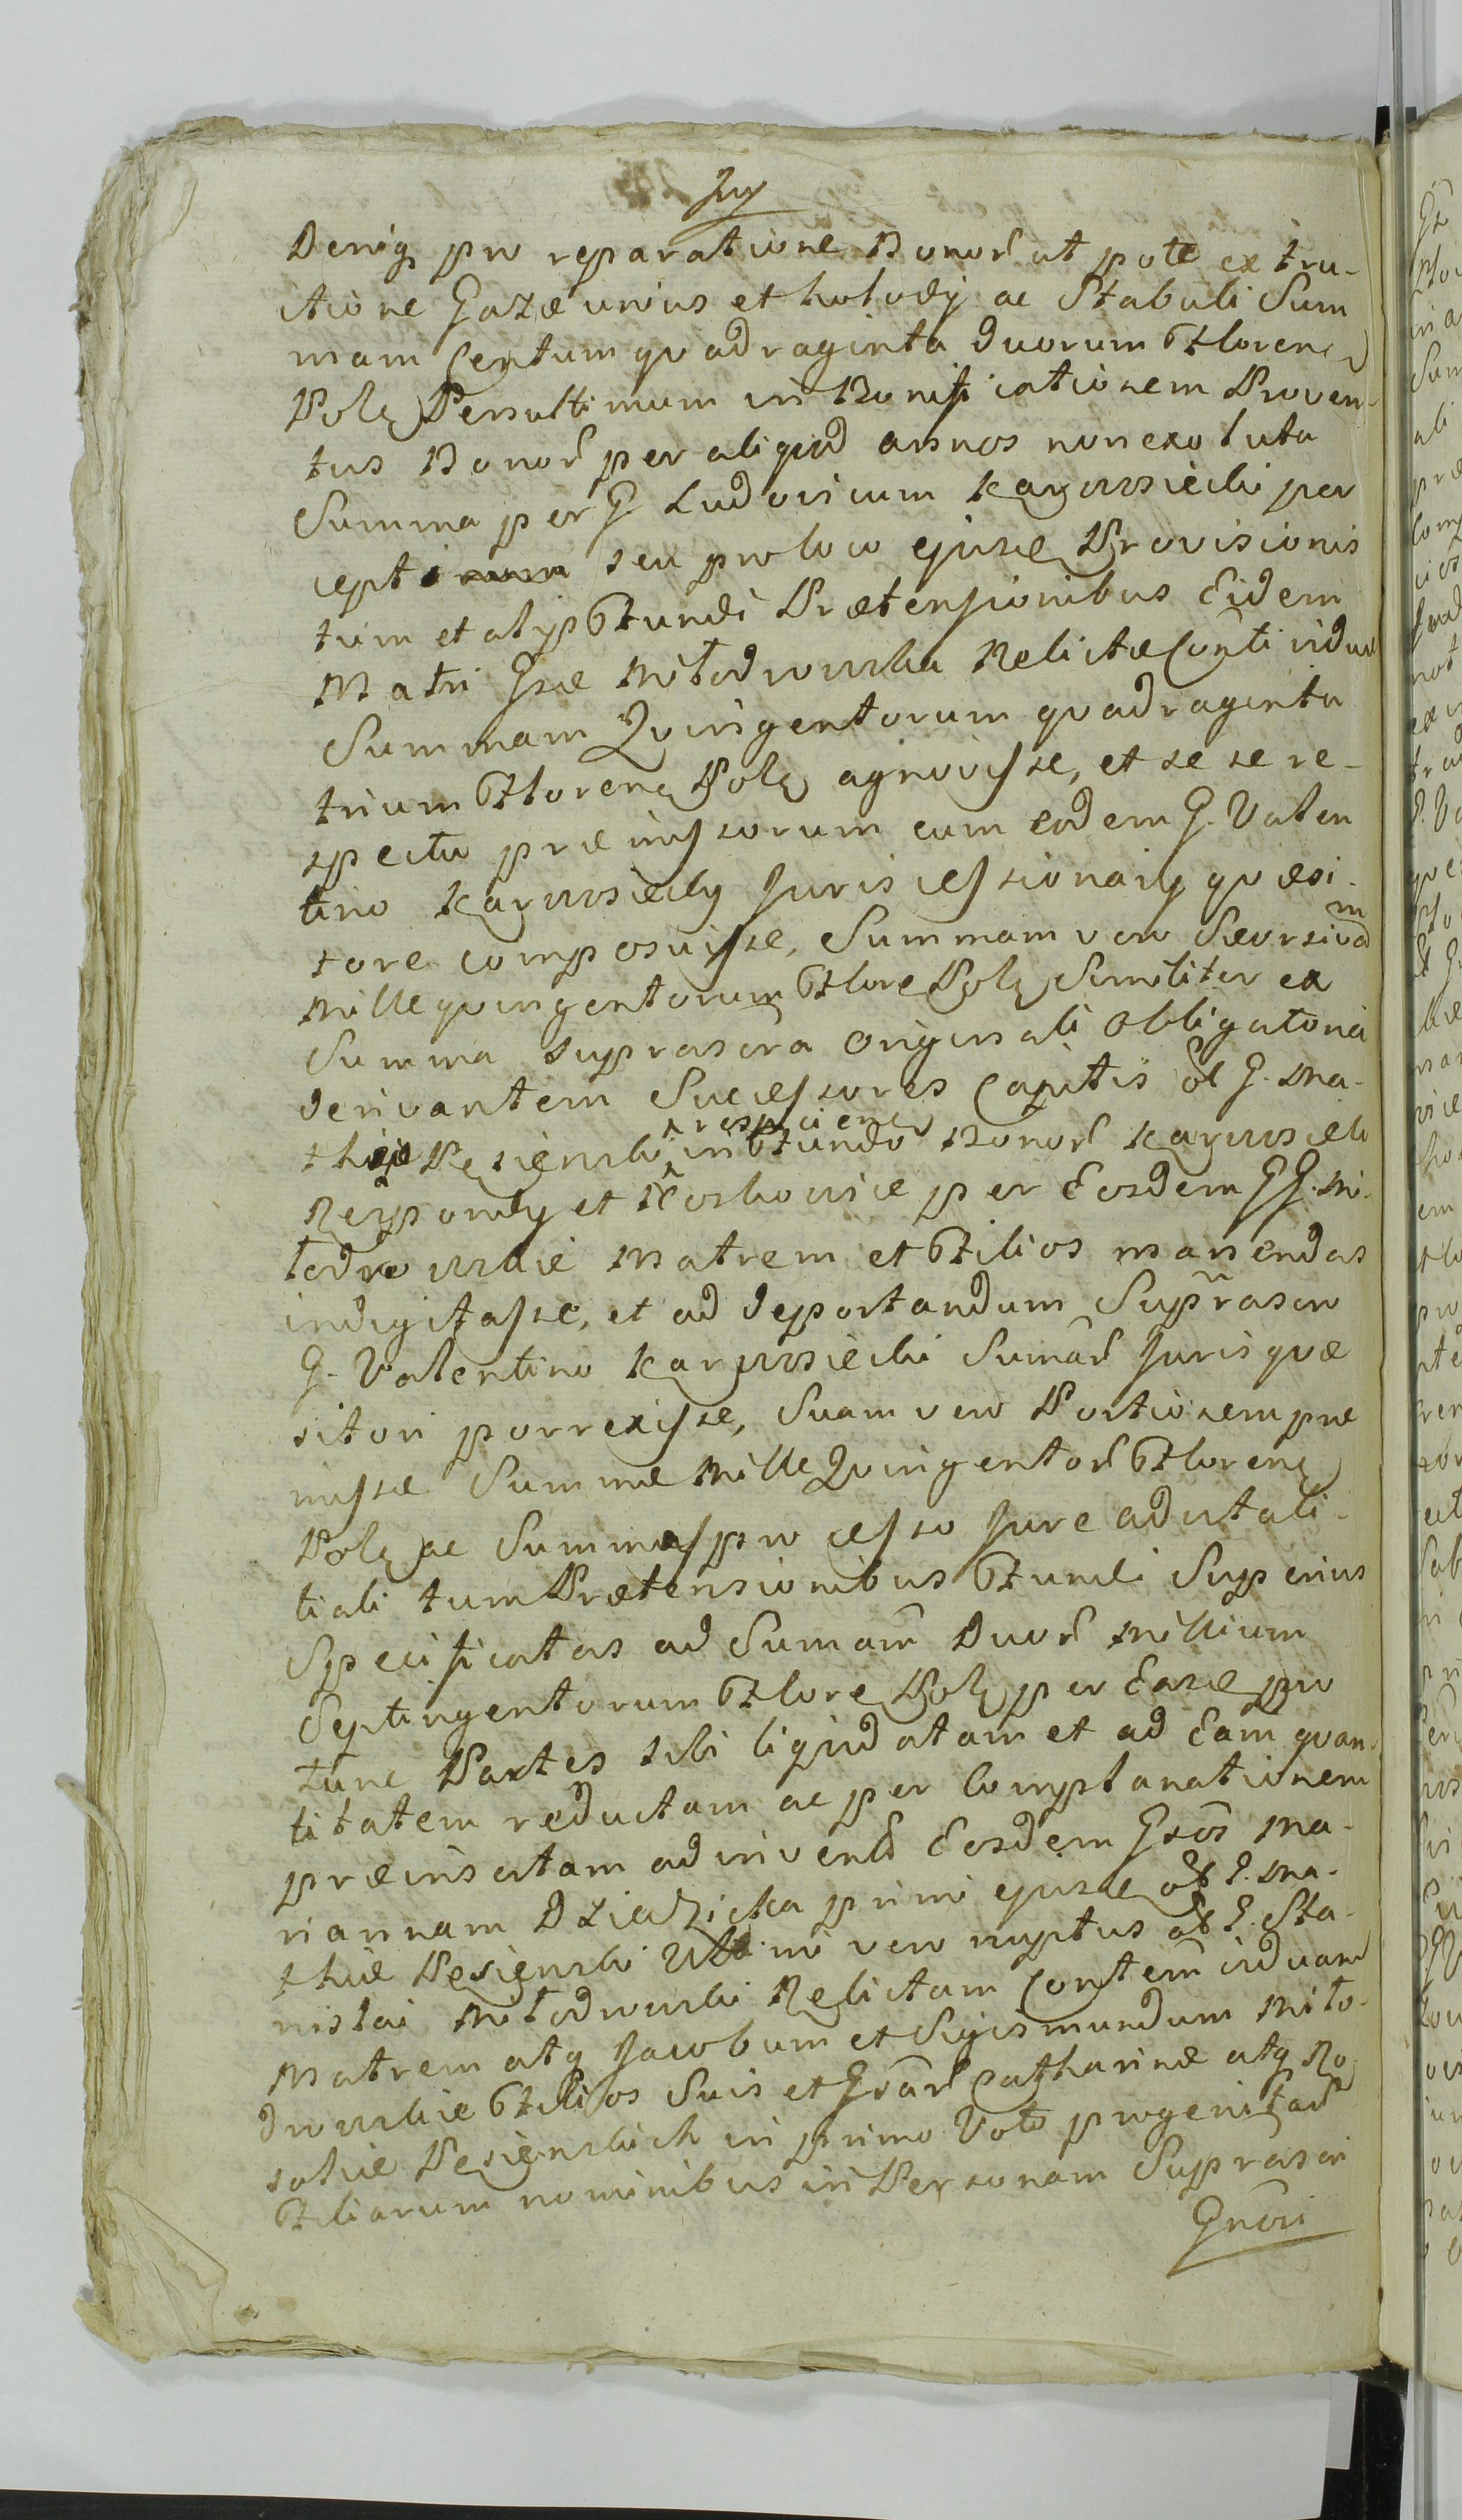 Deniq pro reparatione Bonor ut pote extru-
ctione Gazæ unius et holodÿ ac Stabuli Sum
mam Centum quadraginta duorum Floren
Polq Penultimum in Bonificationem Proven-
tus Bonor per aliquid annos non exoluta
Summa per G Ludovicum Karwosiecki per
cepti seu pro loco ejusq Provisionis
tum et alÿs Fundi Prætensionibus Eidem
Matri Gsæ Miłodrowska Relictæ Consti viduæ
Summam Quingentorum quadraginta
trium Florenq Polq agnovisse, et se se re-
spectu præmissorum cum eodem G. Valen
tino Karwosiecky Juris cessionarÿ quæsi-
tore composuisse, Summam vero Seorsivam
Mille quingentorum Flore Polq Similiter ex
Summa suprascra Originali Obligatoria
derivantem Successores Capitis ol G. Ma-
thiæ Pesięnski respicien in Fundo Bonor Karwosieki
et per Eosdem GG. Mi-
łodrowskie Matrem et Filios manendas
indigitasse, et ad deportandum Suprascro
G. Valentino Karwosiecki Sumar Juris quæ
sitori porrexisse, Suam vero Portionem præ
missæ Summæ Mille Quingentor Florenq
Polq ac Summas pro cesso Jure advitali-
tiali tum Prætensionibus Fundi Superius
Specificatas ad Sumam Duor Millium
Septingentorum Flore Polq per Easq pro
tunc Partes sibi liquidatam et ad Eam quan-
titatem reductam ac per Complanationem
præinsertam adinvend Eosdem Gsos Ma-
riannam Dziadzicka primi ejusq ol G. Ma-
thiæ Pesięnski Ultimi vero nuptus ol G. Sta-
nislai Miłodrowski Relictam Constem viduam
Matrem atq Jacobum et Sigismundum Miło-
drowskie Filios Suis et Gsar Catharinæ atq Ro
saliæ Pesięnskich in primo Voto progenitar
Filiarum nominibus in Personam Suprascri
Gnosi